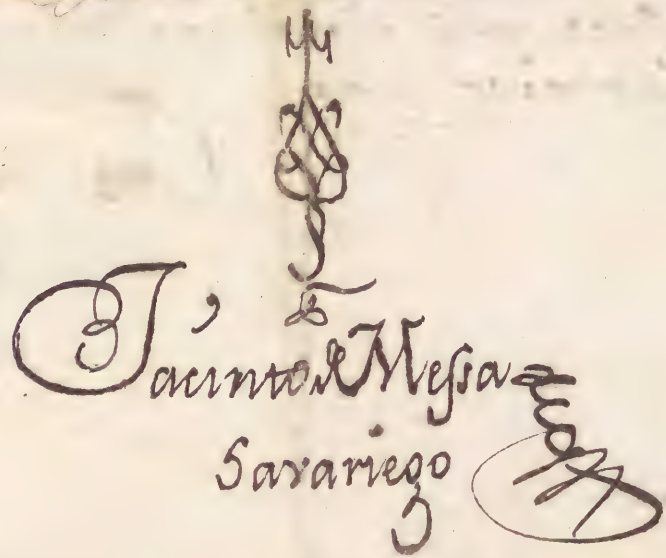 Jacinto de Messa
Savariego